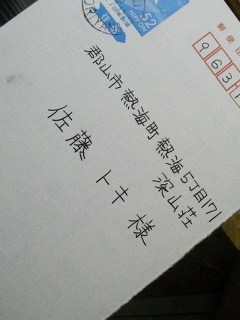 52
NIPPON
郵便
963
郡山市熱海町熱海5丁目171
深山荘
佐藤トキ様